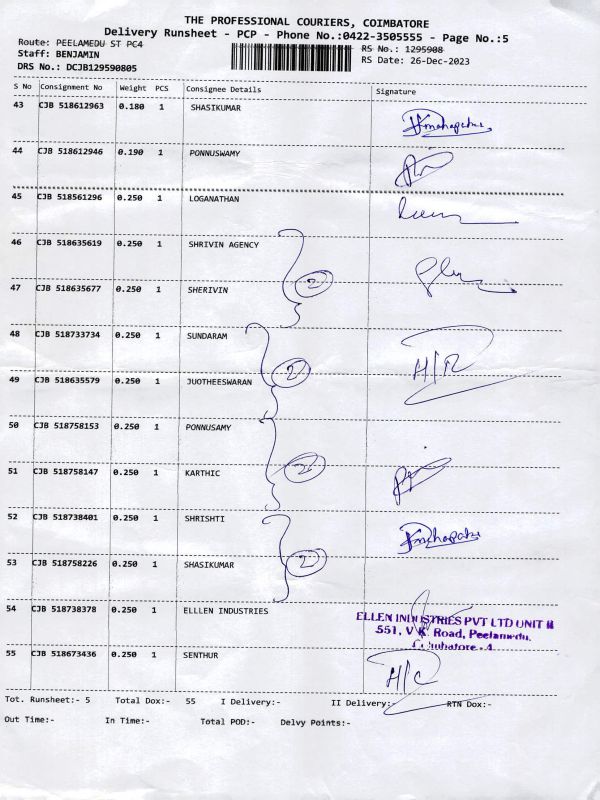 THE PROFESSIONAL COURIERS, COIMBATORE
Delivery Runsheet - PCP - Phone No.:0422-3505555 - Page No.:5
Route: PEELAMEDU ST PC4 RS No.: 1295908
Staff: BENJAMIN RS Date: 26-Dec-2023
DRS No.: DCJB129590805
S No Consignment No Weight PCS Consignee Details Signature
43 CJB 518612963 0.180 1 SHASIKUMAR
44 CJB 518612946 0.190 1 PONNUSWAMY
45 CJB 518561296 0.250 1 LOGANATHAN
46 CJB 518635619 0.250 1 SHRIVIN AGENCY
2
47 CJB 518635677 0.250 1 SHERIVIN
48 CJB 518733734 0.250 1 SUNDARAM
2 H/R
49 CJB 518635579 0.250 1 JUOTHEESWARAN
50 CJB 518758153 0.250 1 PONNUSAMY
2
51 CJB 518758147 0.250 1 KARTHIC
52 CJB 518738401 0.250 1 SHRISHTI
2
53 CJB 518758226 0.250 1 SHASIKUMAR
54 CJB 518738378 0.250 1 ELLLEN INDUSTRIES
ELLEN INDUSTRIES PVT LTD UNIT II
551, V K Road, Peelamedu,
Coimbatore - 4.
55 CJB 518673436 0.250 1 SENTHUR H/C
Tot. Runsheet:- 5 Total Dox:- 55 I Delivery:- II Delivery:- RTN Dox:-
Out Time:- In Time:- Total POD:- Delvy Points:-